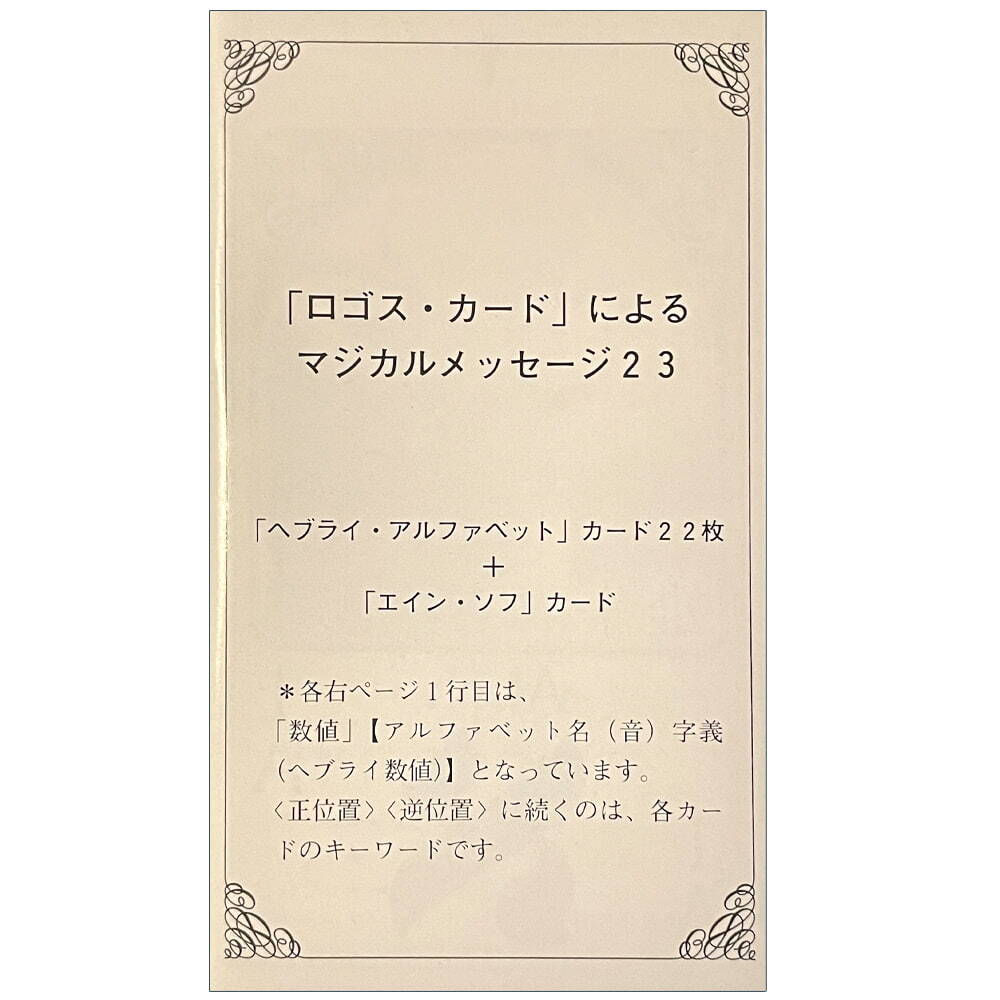 「ロゴス・カード」による
マジカルメッセージ２３
「ヘブライ・アルファベット」カード２２枚
＋
「エイン・ソフ」カード
＊各右ページ１行目は、
「数値」【アルファベット名（音）字義
(ヘブライ数値)】となっています。
〈正位置〉〈逆位置〉に続くのは、各カー
ドのキーワードです。